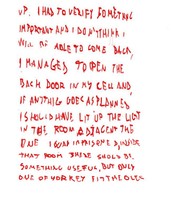 UP. I HAD TO VERIFY SOMETHING
IMPORTANT AND I DON'T THINK I
WILL BE ABLE TO COME BACK.
I MANAGED TO OPEN THE
BACK DOOR IN MY CELL AND,
IF ANYTHIG GOES AS PLANNED
I SHOULD HAVE LIT UP THE LIGHT
IN THE ROOM ADJACENT THE
ONE I WAS IMPRISONED INSIDE
THAT ROOM THERE SHOULD BE
SOMETHING USEFUL, BUT ONLY
ONE OF YOR KEY FIT THE